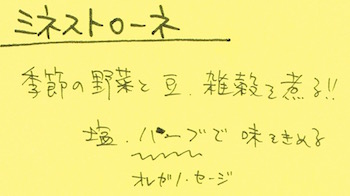 ミネストローネ
季節の野菜と豆、雑穀を煮る!!
塩、ハーブで味をきめる
オレガノ・セージ